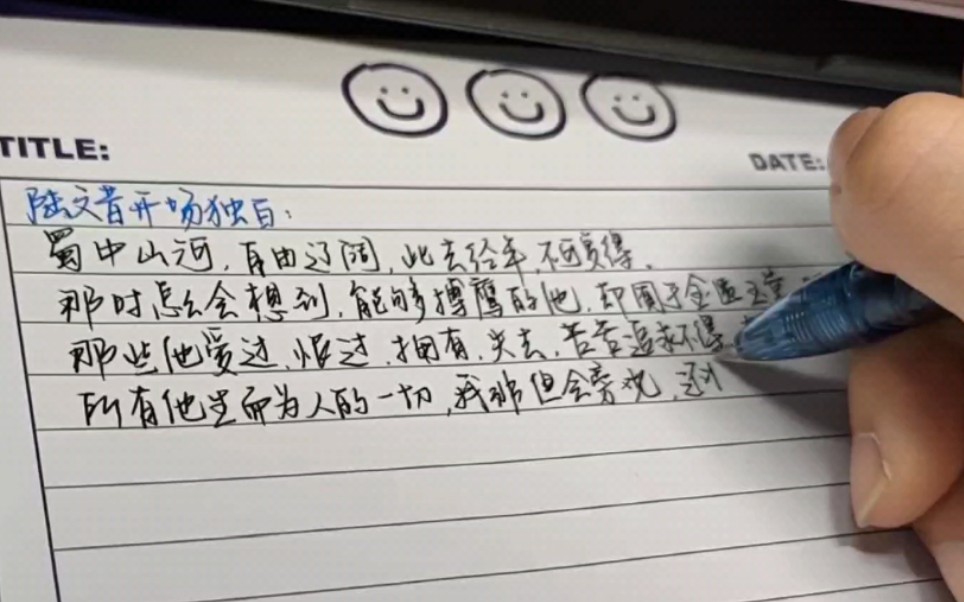 TITLE:
DATE:
陆文昔开场独白:
蜀中山河,自由辽阔,此去经年,不可复得.
那时怎么会想到,能够搏鹰的他,却困于金匮玉堂
那些他爱过,恨过,拥有,失去,苦苦追求不得
所有他生而为人的一切,我都但会旁观,还